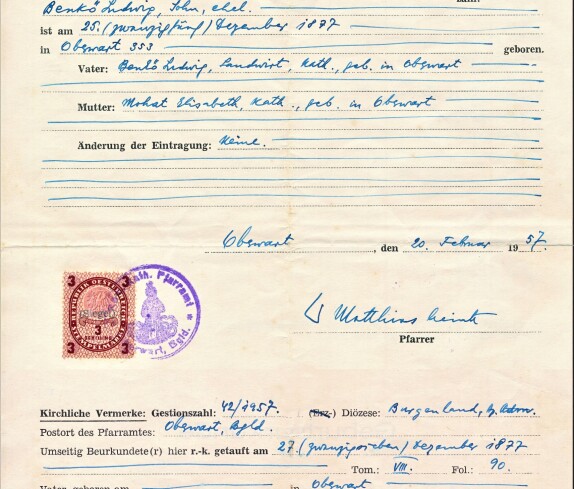 Benkö Ludwig, Sohn, ehel.
ist am 25. (zwanzigfünf) Dezember 1877
in Oberwart 353 geboren.
Vater: Benkö Ludwig, Landwirt, kath., geb. in Oberwart
Mutter: Elisabeth, kath., geb. in Oberwart
Änderung der Eintragung: Keine.
Oberwart, den 20. Februar 1957.
3 3
REPUBLIK OESTERREICH
(Siegel)
3
SCHILLING
STEMPELMARKE
3 3
kath. Pfarramt * Oberwart, Bgld.
Matthias
Pfarrer
Kirchliche Vermerke: Gestionszahl: 42/1957. (Erz-) Diözese: Burgenland, Ap. Adm.
Postort des Pfarramtes: Oberwart, Bgld.
Umseitig Beurkundete(r) hier r.-k. getauft am 27. (zwanzigsieben) Dezember 1877
Tom.: VIII. Fol.: 90.
Vater geboren am in Oberwart